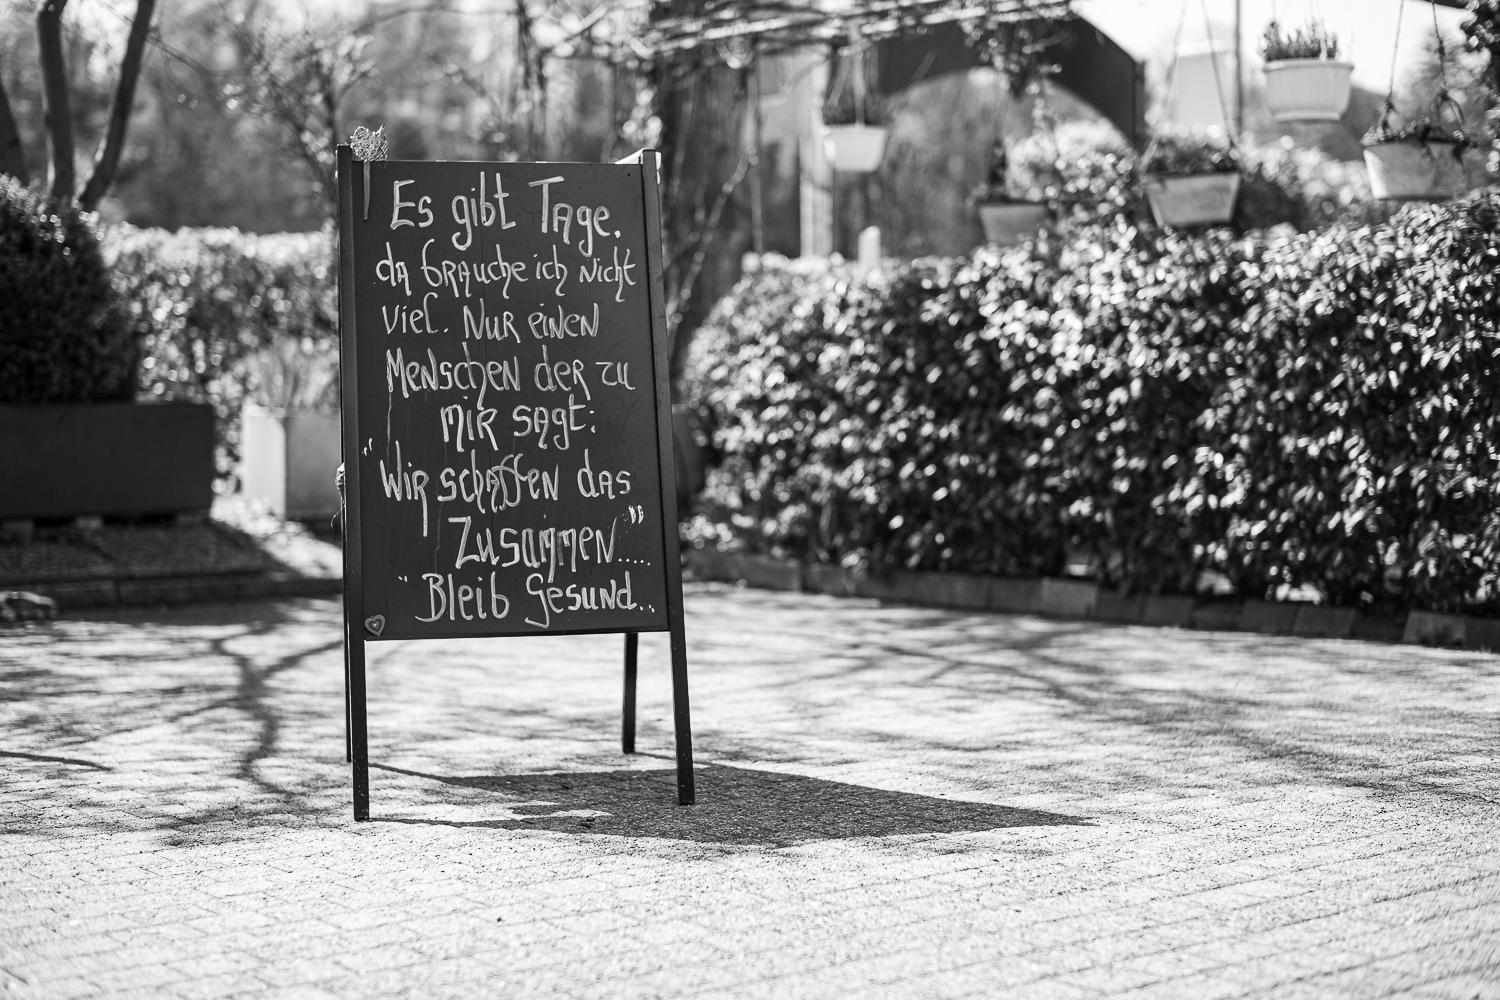 Es gibt Tage,
da brauche ich nicht
viel. Nur einen
Menschen der zu
mir sagt:
"Wir schaffen das
Zusammen".....
"Bleib Gesund..